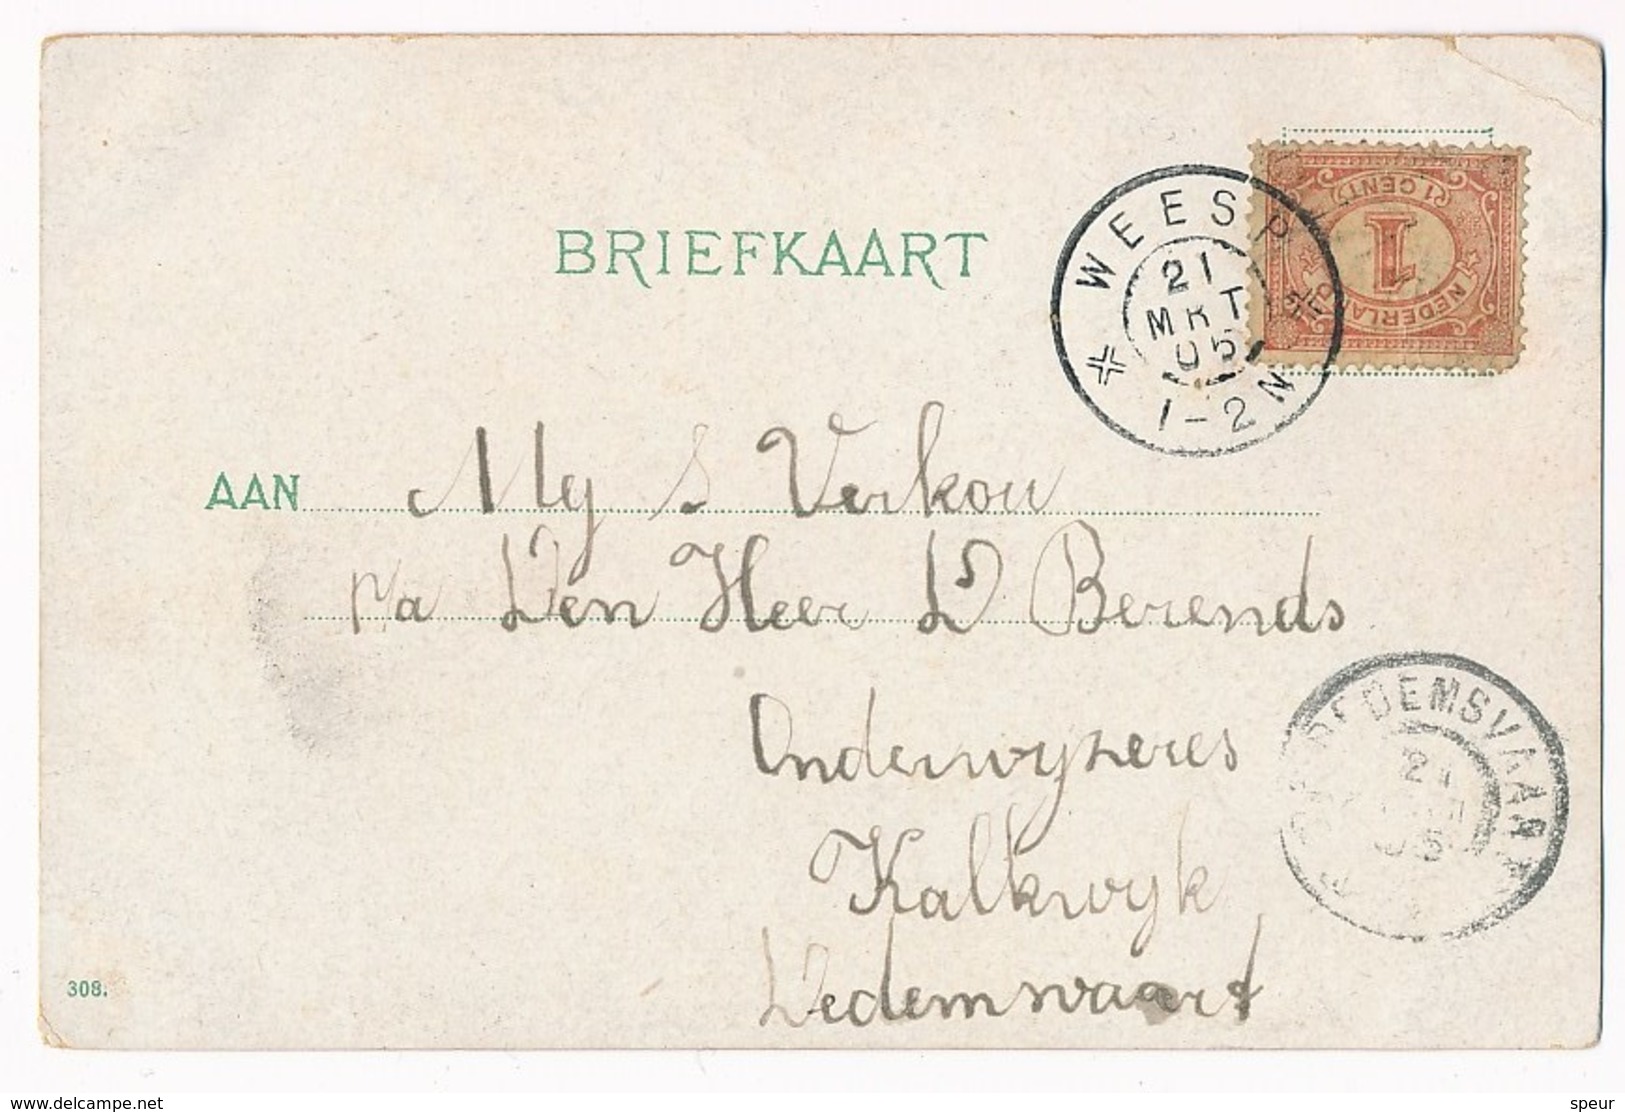 BRIEFKAART
WEESP
21
MRT
05
1-2N
1 CENT
1
NEDERLAND
AAN Mej S Verkou
p/a Den Heer D Berends
Onderwyzeres
Kalkwyk
Dedemsvaart
DEDEMSVAART
21
05
308.
www.delcampe.net
speur